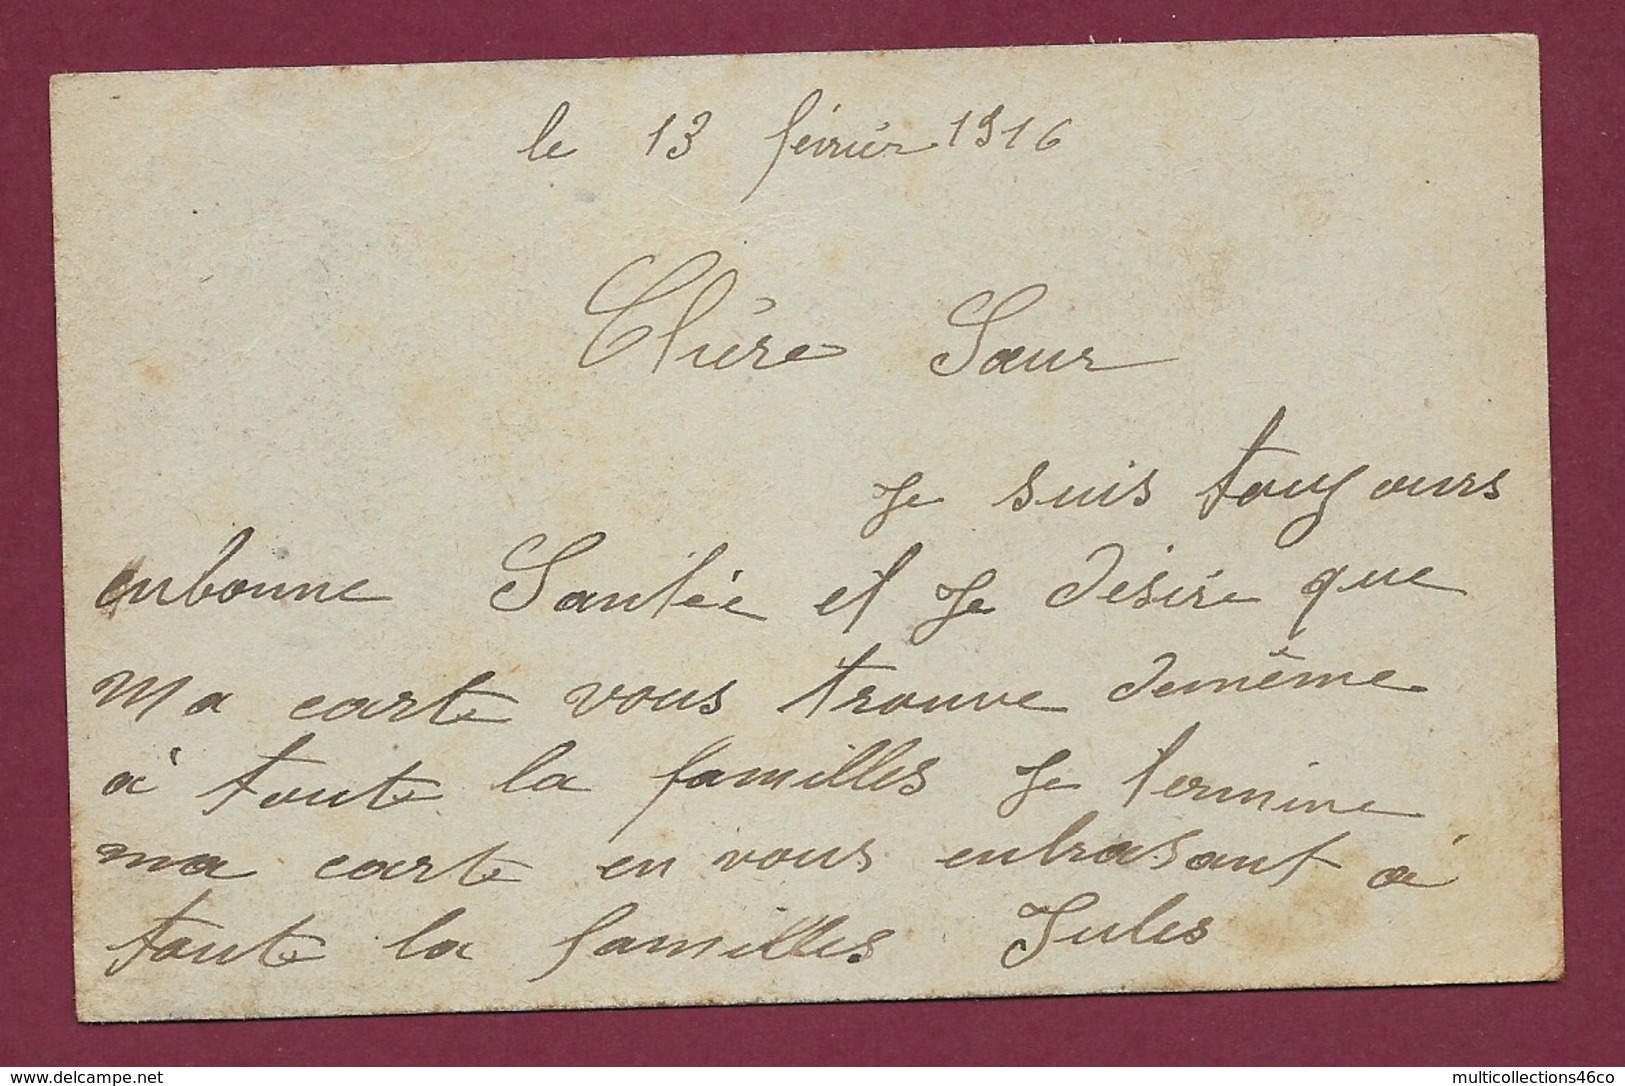 le 13 février 1916
Chère Sœur
Je suis toujours
enbonne Santée et Je désire que
Ma carte vous trouve demême
à toute la familles Je termine
ma carte en vous enbrasant à
toute la familles Jules
www.delcampe.net
multicollections46co